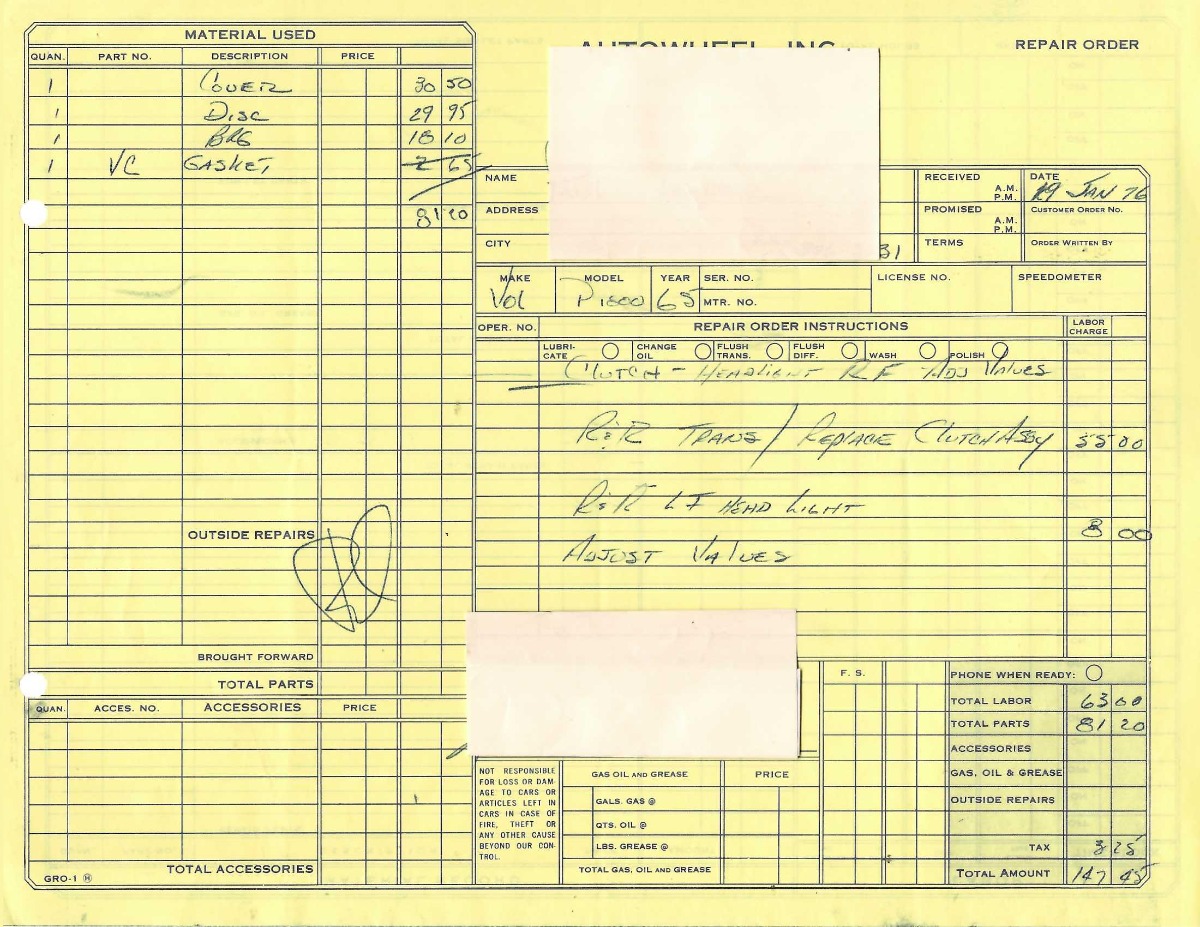 MATERIAL USED
QUAN. PART NO. DESCRIPTION PRICE
1 COVER 30 50
1 DISC 29 95
1 BRG 18 10
1 VC GASKET 2 65
81 20
OUTSIDE REPAIRS
BROUGHT FORWARD
TOTAL PARTS
QUAN. ACCES. NO. ACCESSORIES PRICE
TOTAL ACCESSORIES
GRO-1
AUTOWHEEL, INC.
REPAIR ORDER
NAME
ADDRESS
CITY 31
RECEIVED A.M. P.M.
PROMISED A.M. P.M.
TERMS
DATE 19 JAN 76
CUSTOMER ORDER NO.
ORDER WRITTEN BY
MAKE MODEL YEAR SER. NO. LICENSE NO. SPEEDOMETER
Vol P1800 65 MTR. NO.
OPER. NO. REPAIR ORDER INSTRUCTIONS LABOR CHARGE
LUBRI-CATE CHANGE OIL FLUSH TRANS. FLUSH DIFF. WASH POLISH
CLUTCH - HEADLIGHT RF ADJ VALVES
R&R TRANS / REPLACE CLUTCH ASSY 55 00
R&R LF HEAD LIGHT
8 00
ADJUST VALVES
F. S.
PHONE WHEN READY:
TOTAL LABOR 63 00
TOTAL PARTS 81 20
ACCESSORIES
GAS, OIL & GREASE
OUTSIDE REPAIRS
TAX 3 25
TOTAL AMOUNT 147 45
NOT RESPONSIBLE
FOR LOSS OR DAM-
AGE TO CARS OR
ARTICLES LEFT IN
CARS IN CASE OF
FIRE, THEFT OR
ANY OTHER CAUSE
BEYOND OUR CON-
TROL.
GAS OIL AND GREASE PRICE
GALS. GAS @
QTS. OIL @
LBS. GREASE @
TOTAL GAS, OIL AND GREASE